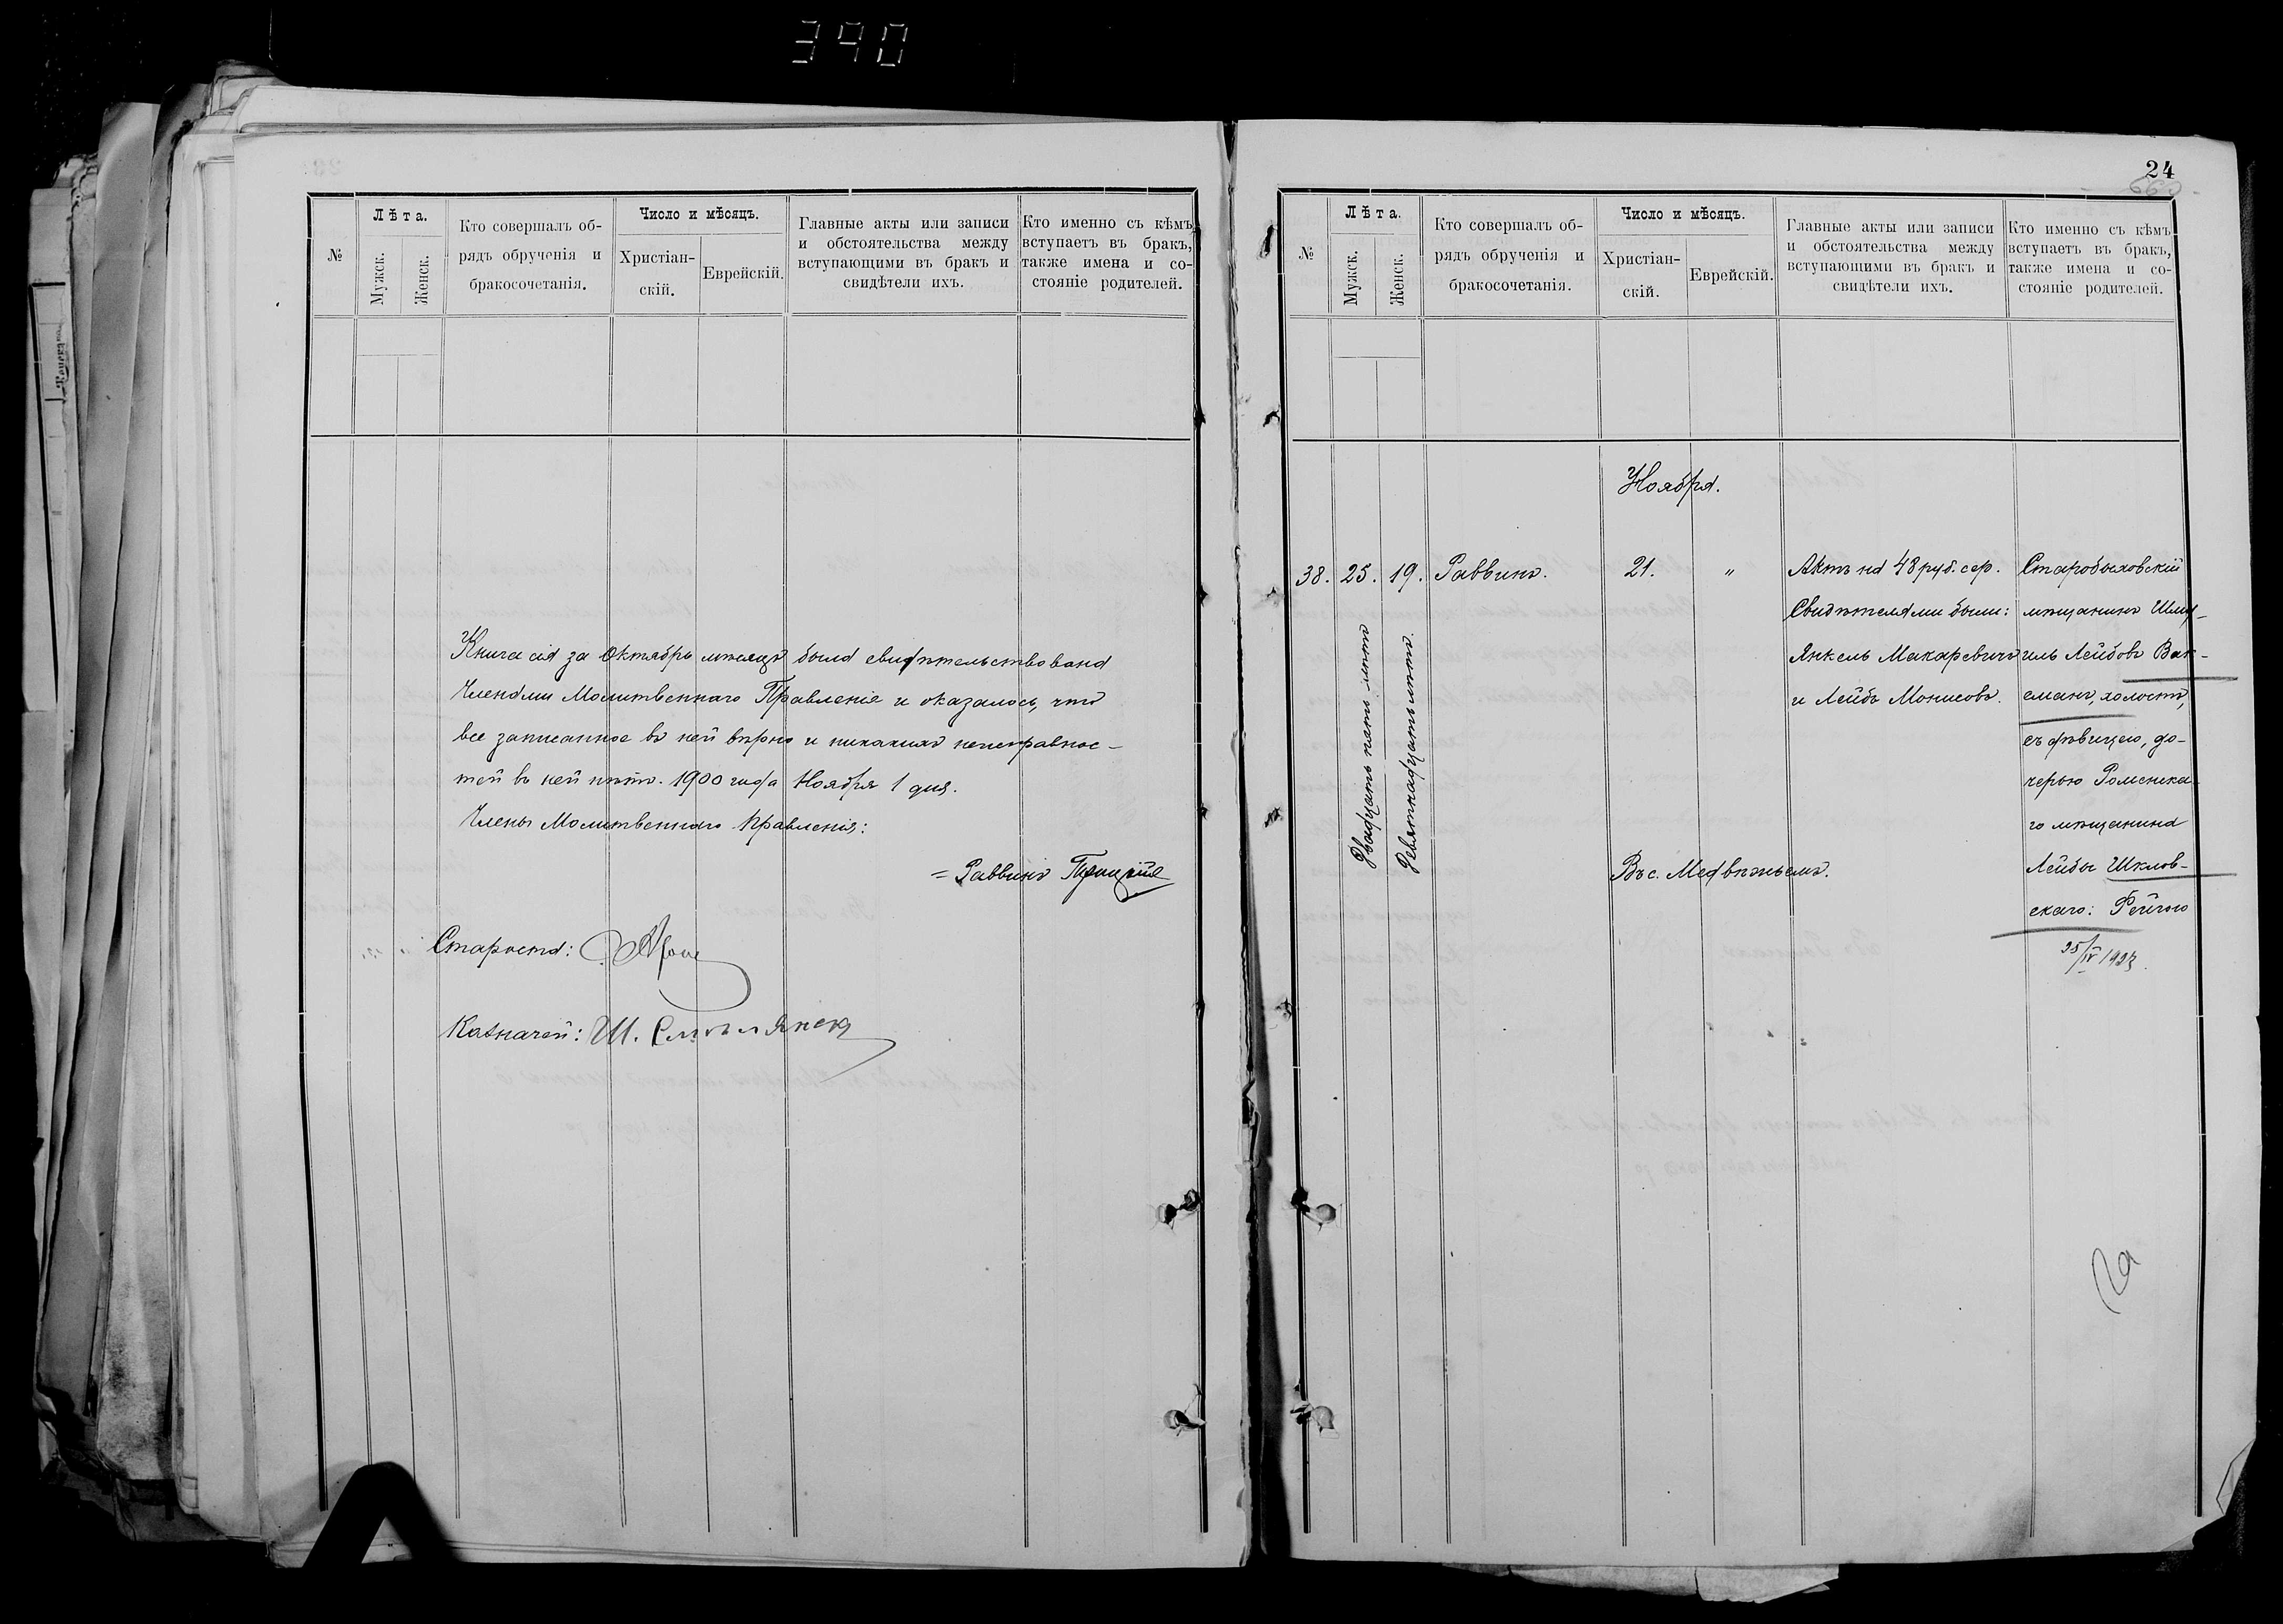 390
№
Лѣта.
Мужск.
Женск.
Кто совершалъ об-
рядъ обрученія и
бракосочетанія.
Число и мѣсяцъ.
Христіан-
скій.
Еврейскій.
Главные акты или записи
и обстоятельства между
вступающими въ бракъ и
свидѣтели ихъ.
Кто именно съ кѣмъ
вступаетъ въ бракъ,
также имена и со-
стояніе родителей.
Книга сія за Октябрь мѣсяцъ была свидѣтельствована
Членами Молитвеннаго Правленія и оказалось, что
все записанное въ ней вѣрно и никакихъ неисправнос-
тей въ ней нѣтъ. 1900 года Ноября 1 дня.
Члены Молитвеннаго Правленія:
= Раввинъ
Староста:
Казначей: Ш.
24
№
Лѣта.
Мужск.
Женск.
Кто совершалъ об-
рядъ обрученія и
бракосочетанія.
Число и мѣсяцъ.
Христіан-
скій.
Еврейскій.
Главные акты или записи
и обстоятельства между
вступающими въ бракъ и
свидѣтели ихъ.
Кто именно съ кѣмъ
вступаетъ въ бракъ,
также имена и со-
стояніе родителей.
Ноября.
38.
25.
Двадцать пять лѣтъ
19.
Девятнадцать лѣтъ.
Раввинъ.
21.
"
Въ с. Медвѣжьемъ.
Актъ на 48 руб. сер.
Свидѣтелями были:
Янкель Макаревичъ
и Лейба Монисовъ.
Старобыховскій
мѣщанинъ Шму-
иль Лейбовъ Вак-
сманъ, холостъ,
съ дѣвицею, до-
черью Роменска-
го мѣщанина
Лейбы Шклов-
скаго: Рейзою